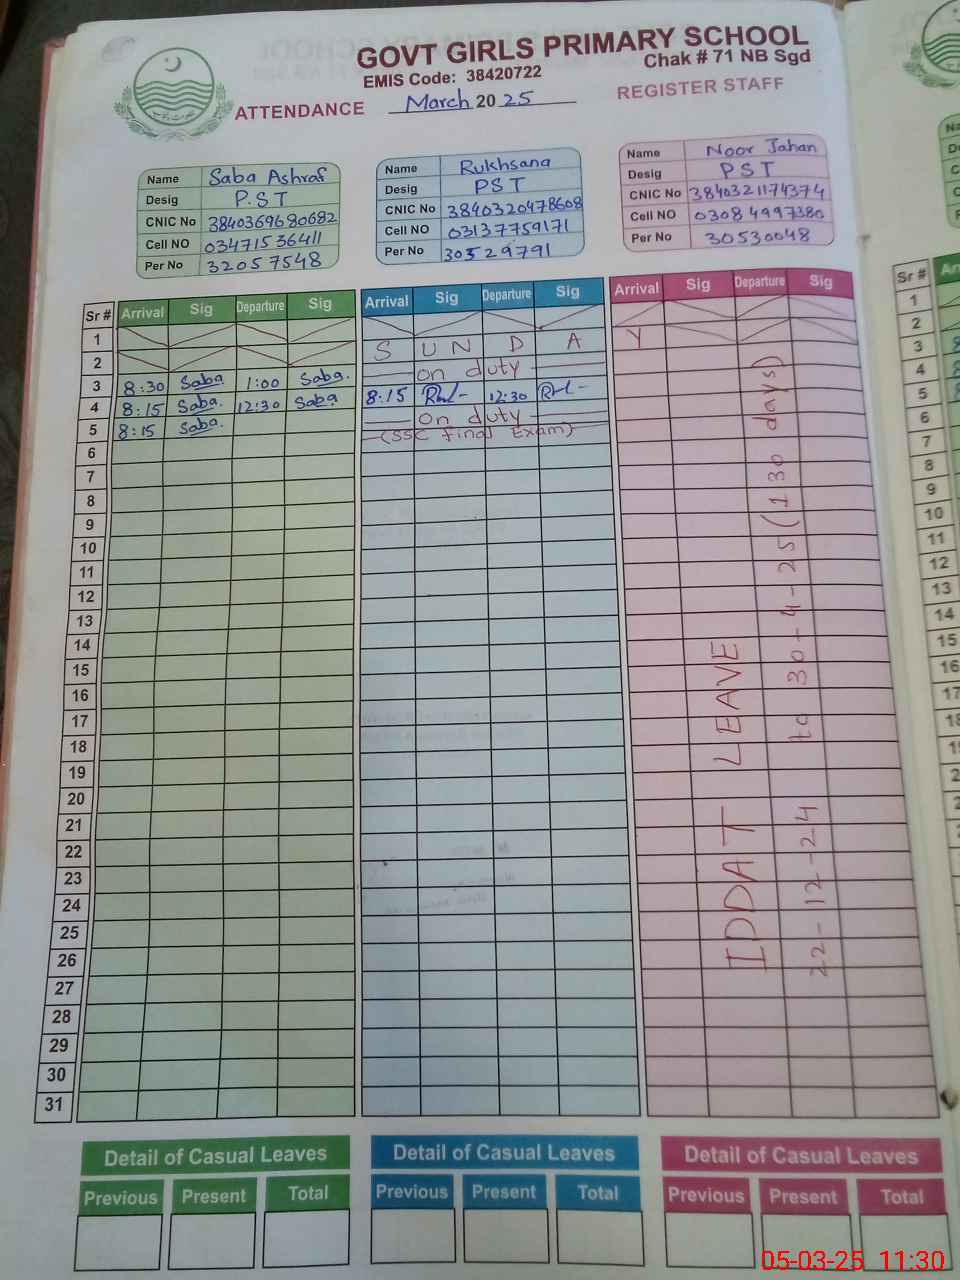 GOVT GIRLS PRIMARY SCHOOL
EMIS Code: 38420722
Chak # 71 NB Sgd
ATTENDANCE March 2025 REGISTER STAFF
Name Saba Ashraf
Desig P.ST
CNIC No 3840369680682
Cell NO 03471536411
Per No 32057548
Name Rukhsana
Desig PST
CNIC No 3840320478608
Cell NO 03137759171
Per No 30529791
Name Noor Jahan
Desig PST
CNIC No 3840321174374
Cell NO 03084997380
Per No 30530048
Sr # Arrival Sig Departure Sig Arrival Sig Departure Sig Arrival Sig Departure Sig
1
2 S U N D A Y
3 8:30 Saba 1:00 Saba. on duty
4 8:15 Saba. 12:30 Saba 8:15 12:30
5 8:15 Saba. on duty
(SSC final Exam)
6
7
8
9
10
11
12
13
14
15
16
17
18
19
20
21
22
23
24
25
26
27
28
29
30
31
IDDAT LEAVE
22-12-24 to 30-4-25 (130 days)
Detail of Casual Leaves Detail of Casual Leaves Detail of Casual Leaves
Previous Present Total Previous Present Total Previous Present Total
Sr #
1
2
3
4
5
6
7
8
9
10
11
12
13
14
15
16
17
05-03-25 11:30